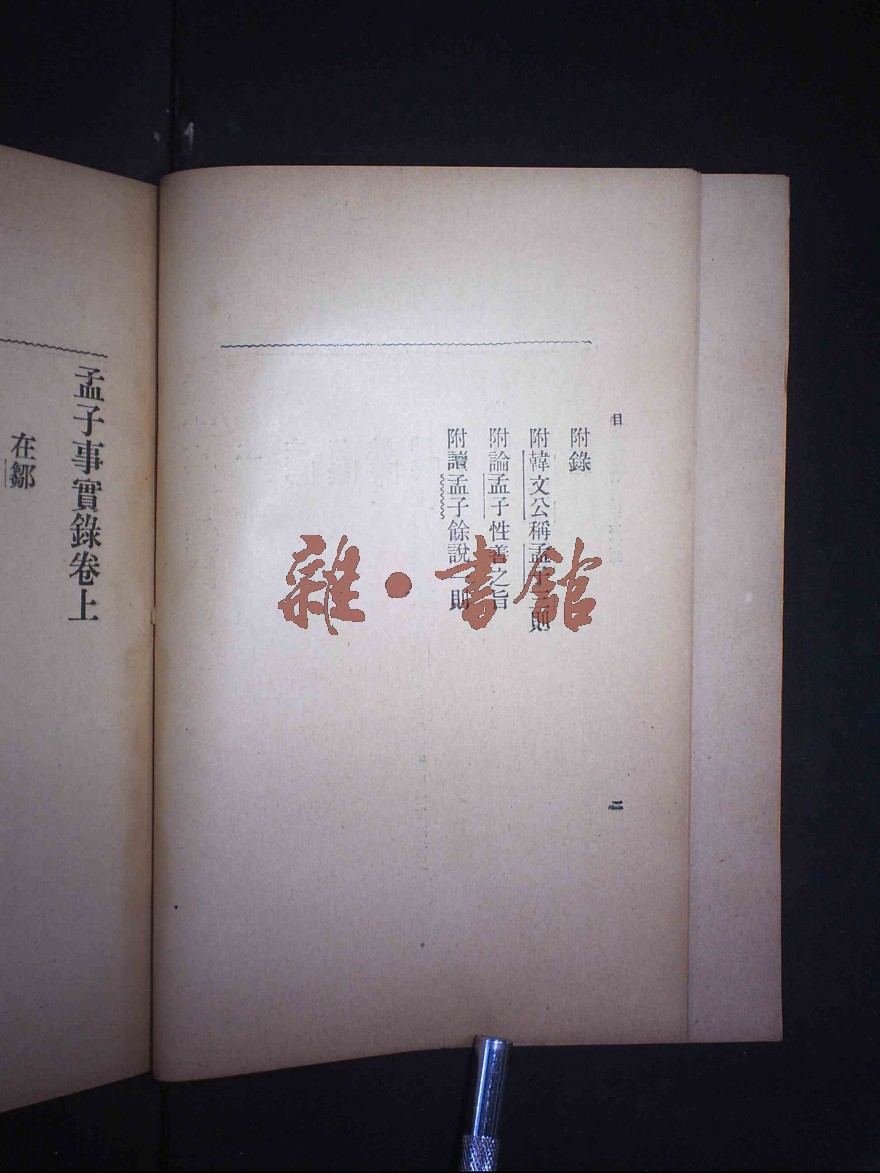 目
二
附錄
附韓文公稱孟子則
附論孟子性善之旨
附讀孟子餘說一則
孟子事實錄卷上
在鄒
雜·書館